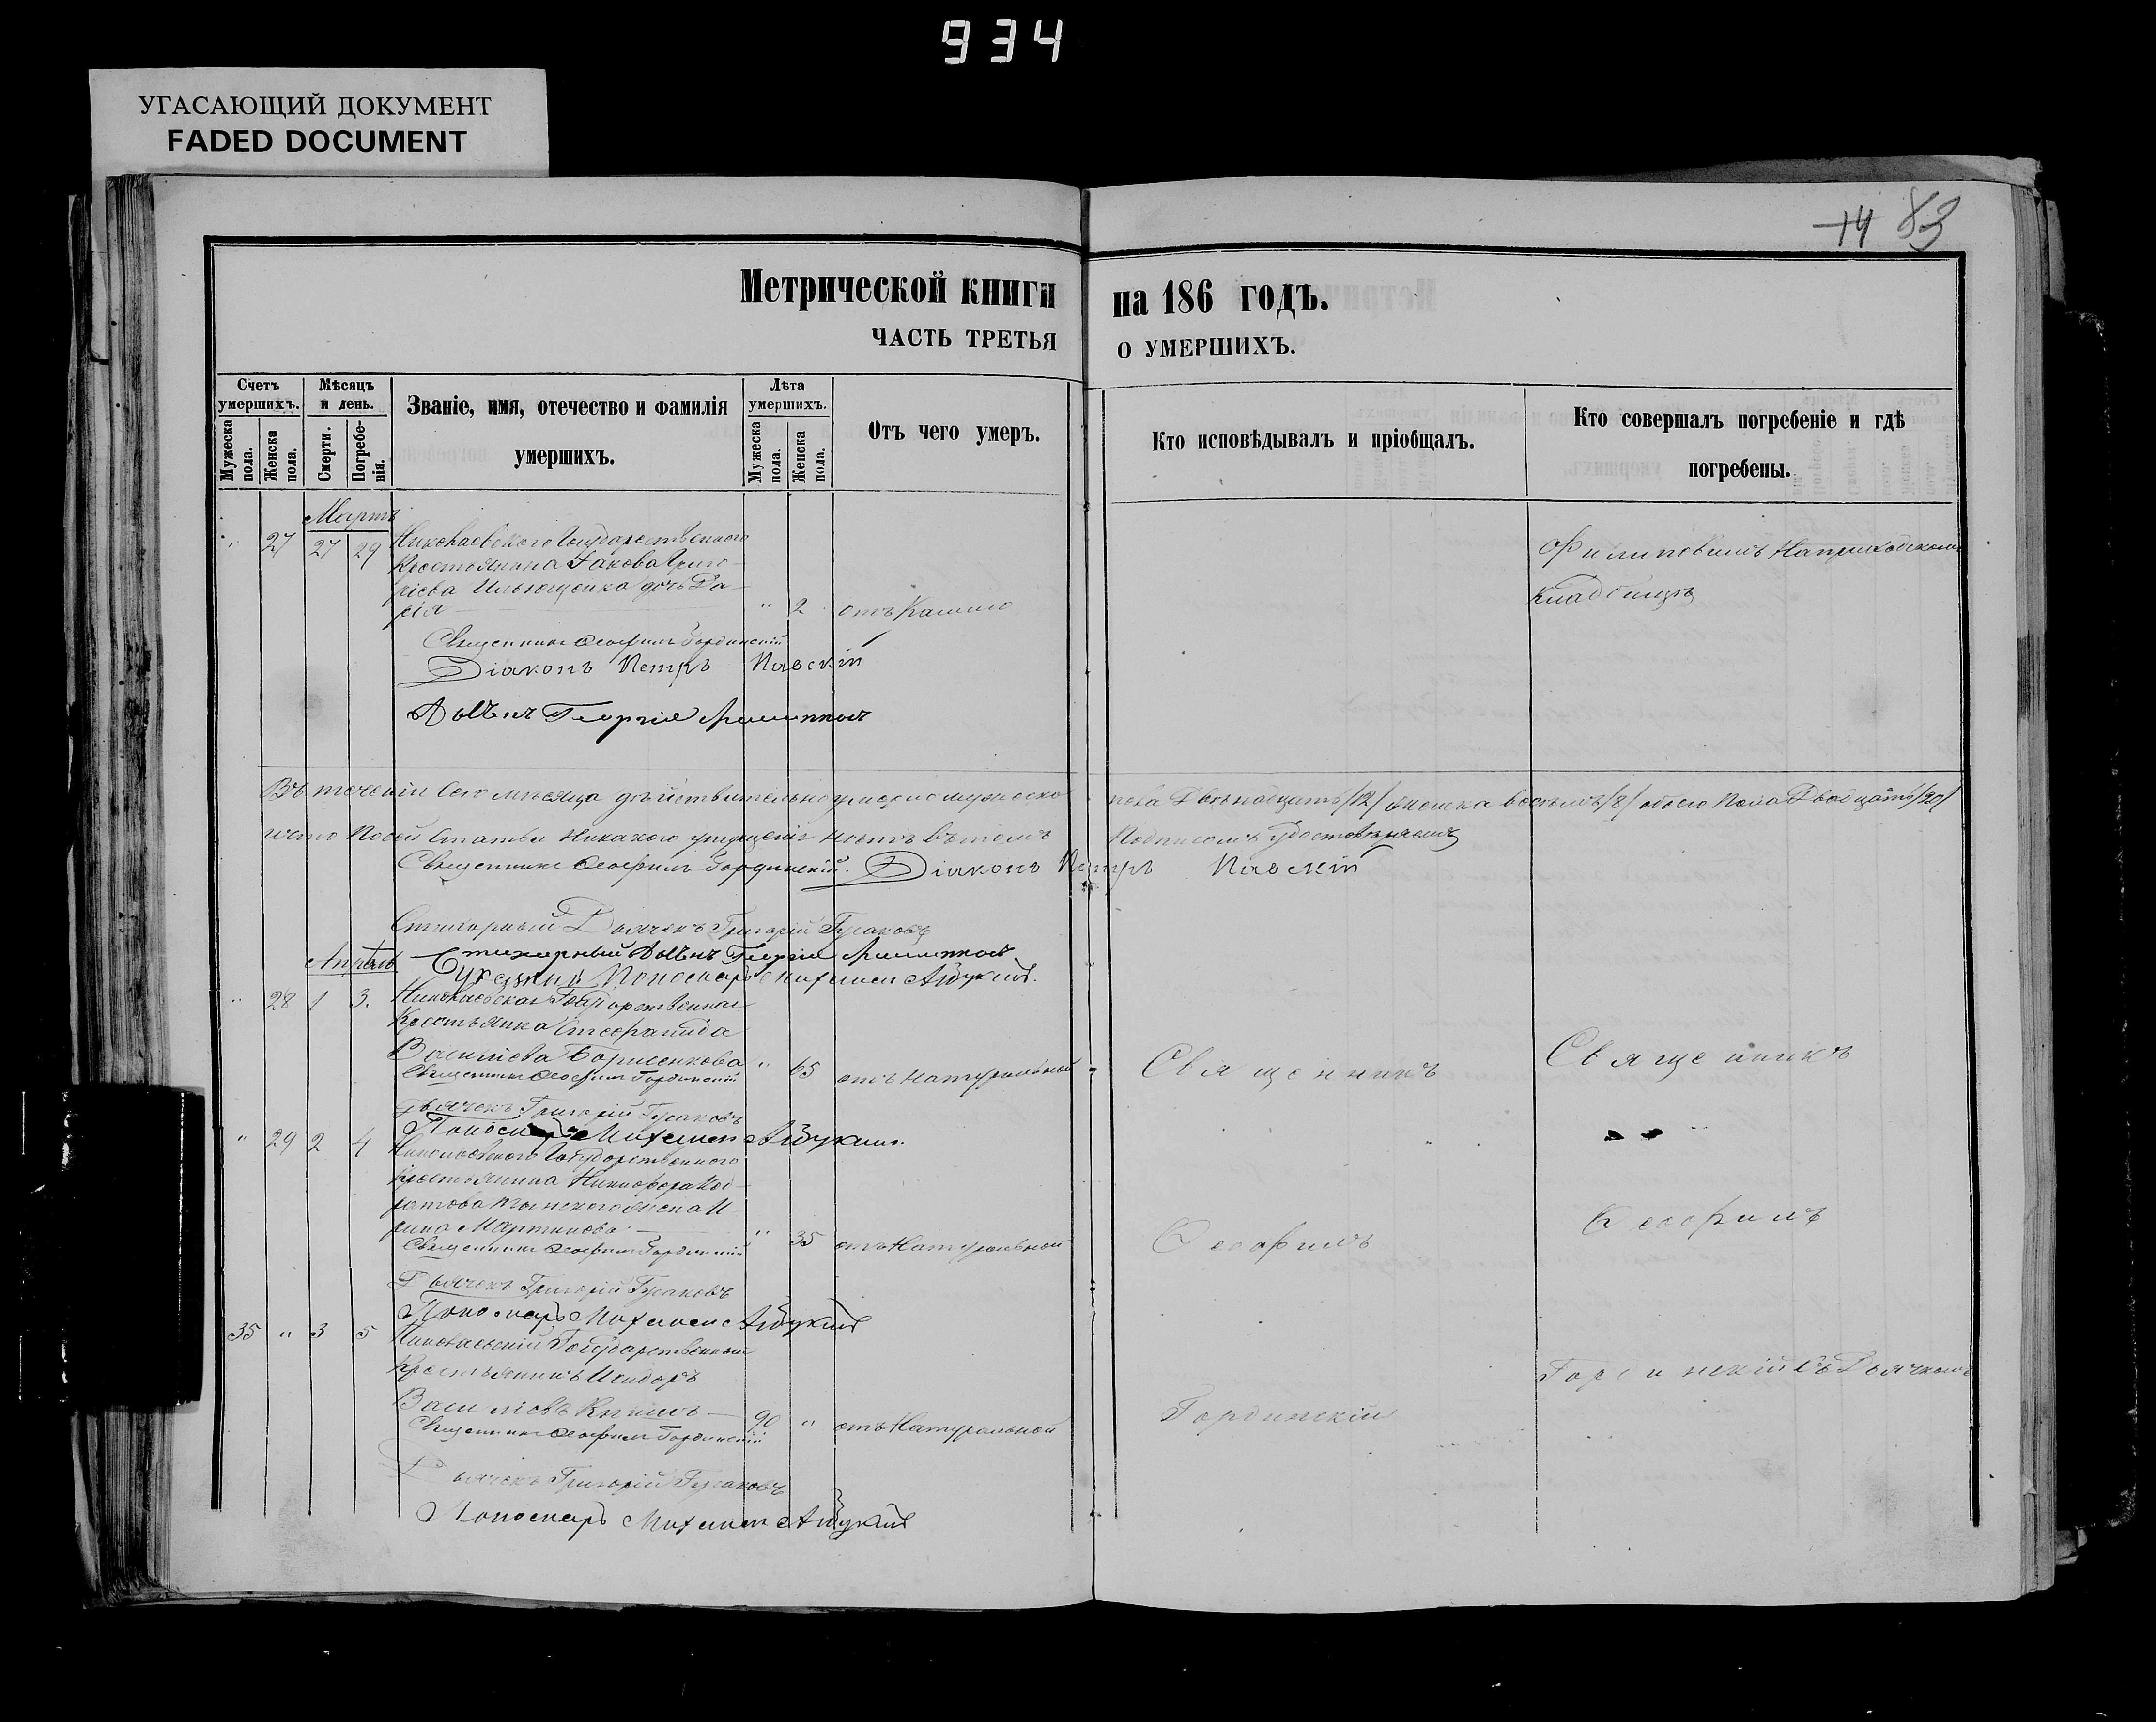 934
УГАСАЮЩИЙ ДОКУМЕНТ
FADED DOCUMENT
14 83
Метрической книги на 186 годъ.
ЧАСТЬ ТРЕТЬЯ О УМЕРШИХЪ.
Счетъ умершихъ.
Мужеска пола.
Женска пола.
Мѣсяцъ и день.
Смерти.
Погребенія.
Званіе, имя, отечество и фамилія умершихъ.
Лѣта умершихъ.
Мужеска пола.
Женска пола.
Отъ чего умеръ.
Кто исповѣдывалъ и пріобщалъ.
Кто совершалъ погребеніе и гдѣ погребены.
Мартъ
" 27 27 29 Николаевскаго Государственного
Крестьянина Іакова Григо-
рієва Ильющенка дочь Да-
рія " 2 отъ Кашлю
Филиповимъ На приходскомъ
кладбищѣ
Священникъ Ѳеофилъ Гординскій
Діаконъ Петръ Павскій
Дьячекъ Георгій
Въ теченіи сего мѣсяца дѣйствительно умерло мужеска пола Двѣнадцать /12/ женска восемь /8/ обоего пола Двадцать /20/
что по сей статьи никакого упущенія нѣтъ въ томъ подписомъ удостовѣряемъ
Священникъ Ѳеофилъ Гординскій. Діаконъ Петръ Павскій
Стихарный Дьячекъ Григорій Гусаковъ
Стихарный Дьячекъ Георгій
Апрѣль Пономарь
" 28 1 3. Николаевская Государственная
Крестьянка Стефанида
Василіева Борисенкова " 65 отъ Натуральной
Священникъ Ѳеофилъ Гординскій
Священникъ
Священникъ
Дьячекъ Григорій Гусаковъ
Пономарь
" 29 2 4 Николаевского Государственного
Крестьянина Никифора
жена И
рина Мартинова " 35 отъ Натуральной
Священникъ Ѳеофилъ Гординскій
Ѳеофилъ
Ѳеофилъ
Дьячекъ Григорій Гусаковъ
Пономарь
35 " 3 5 Николаевскій Государственный
Крестьянинъ Исидоръ
Василіевъ 90 " отъ Натуральной
Священникъ Ѳеофилъ Гординскій
Гординскій
Гординскій съ Дьячкомъ
Дьячекъ Григорій Гусаковъ
Пономарь